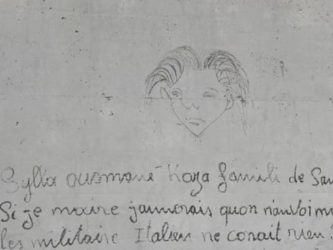 Sylla ousmané Kaza famili de San
Si je maire jaimerais quon n'anvoi m
les militaire Italien ne conait rien